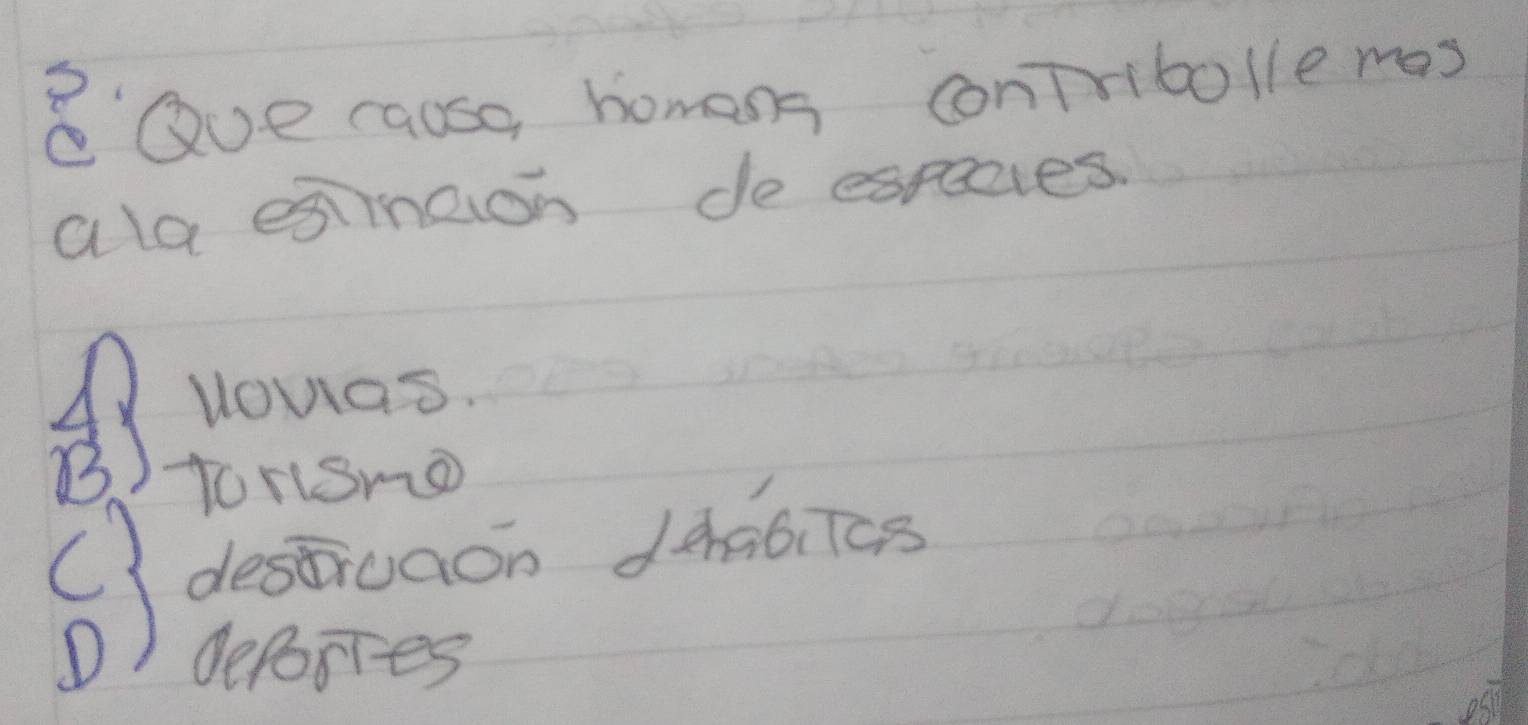 8. Que causa homana contribolle mos
a la estincion de especies.
A) llovias.
B) torismo
C) destrucion d habitas
D) deportes